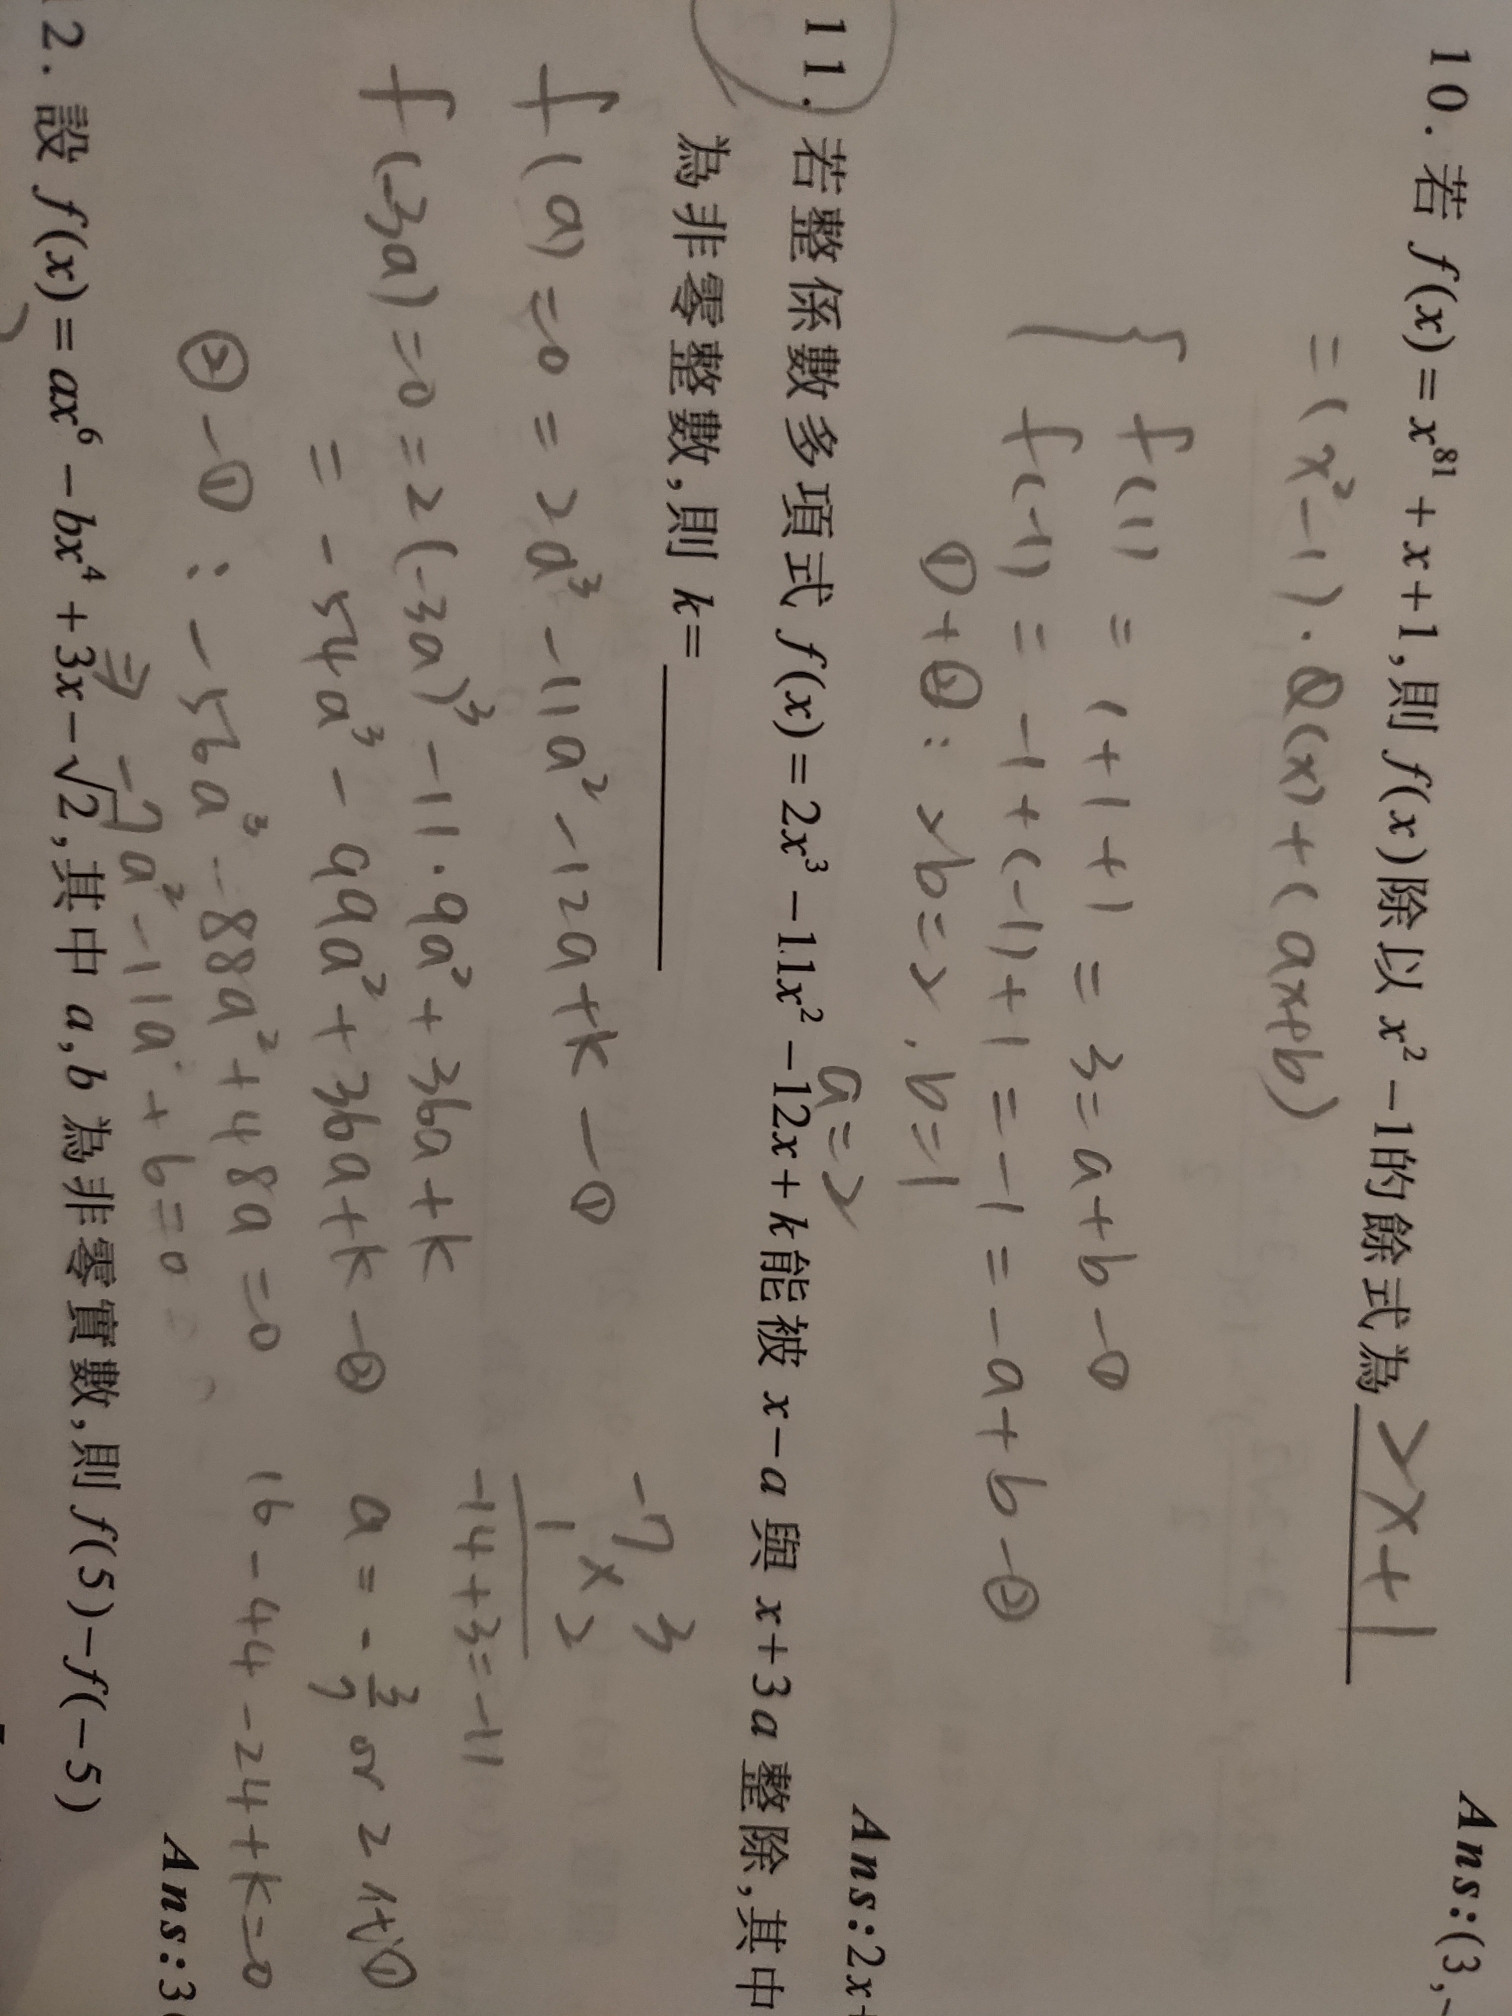 Ans:(3,-
10. 若 f(x) = x⁸¹ + x + 1, 則 f(x) 除以 x² − 1 的餘式為 2x+1
= (x²-1)·Q(x)+(ax+b)
{ f(1) = 1+1+1 = 3 = a+b -①
f(-1) = -1+(-1)+1 = -1 = -a+b -②
①+②: 2b=2, b=1
a=2
Ans:2x+
11. 若整係數多項式 f(x) = 2x³ − 11x² − 12x + k 能被 x − a 與 x + 3a 整除, 其中
為非零整數, 則 k =
f(a)=0 = 2a³-11a²-12a+k -①
f(-3a)=0 = 2(-3a)³-11·9a²+36a+k
= -54a³-99a²+36a+k -②
②-①: -56a³-88a²+48a=0
⇒ -7a²-11a+6=0
-7 3
1 × 2
-14+3=-11
a=-3/7 or 2 代①
16-44-24+k=0
Ans:3
2. 設 f(x) = ax⁶ − bx⁴ + 3x − √2, 其中 a, b 為非零實數, 則 f(5) − f(−5)